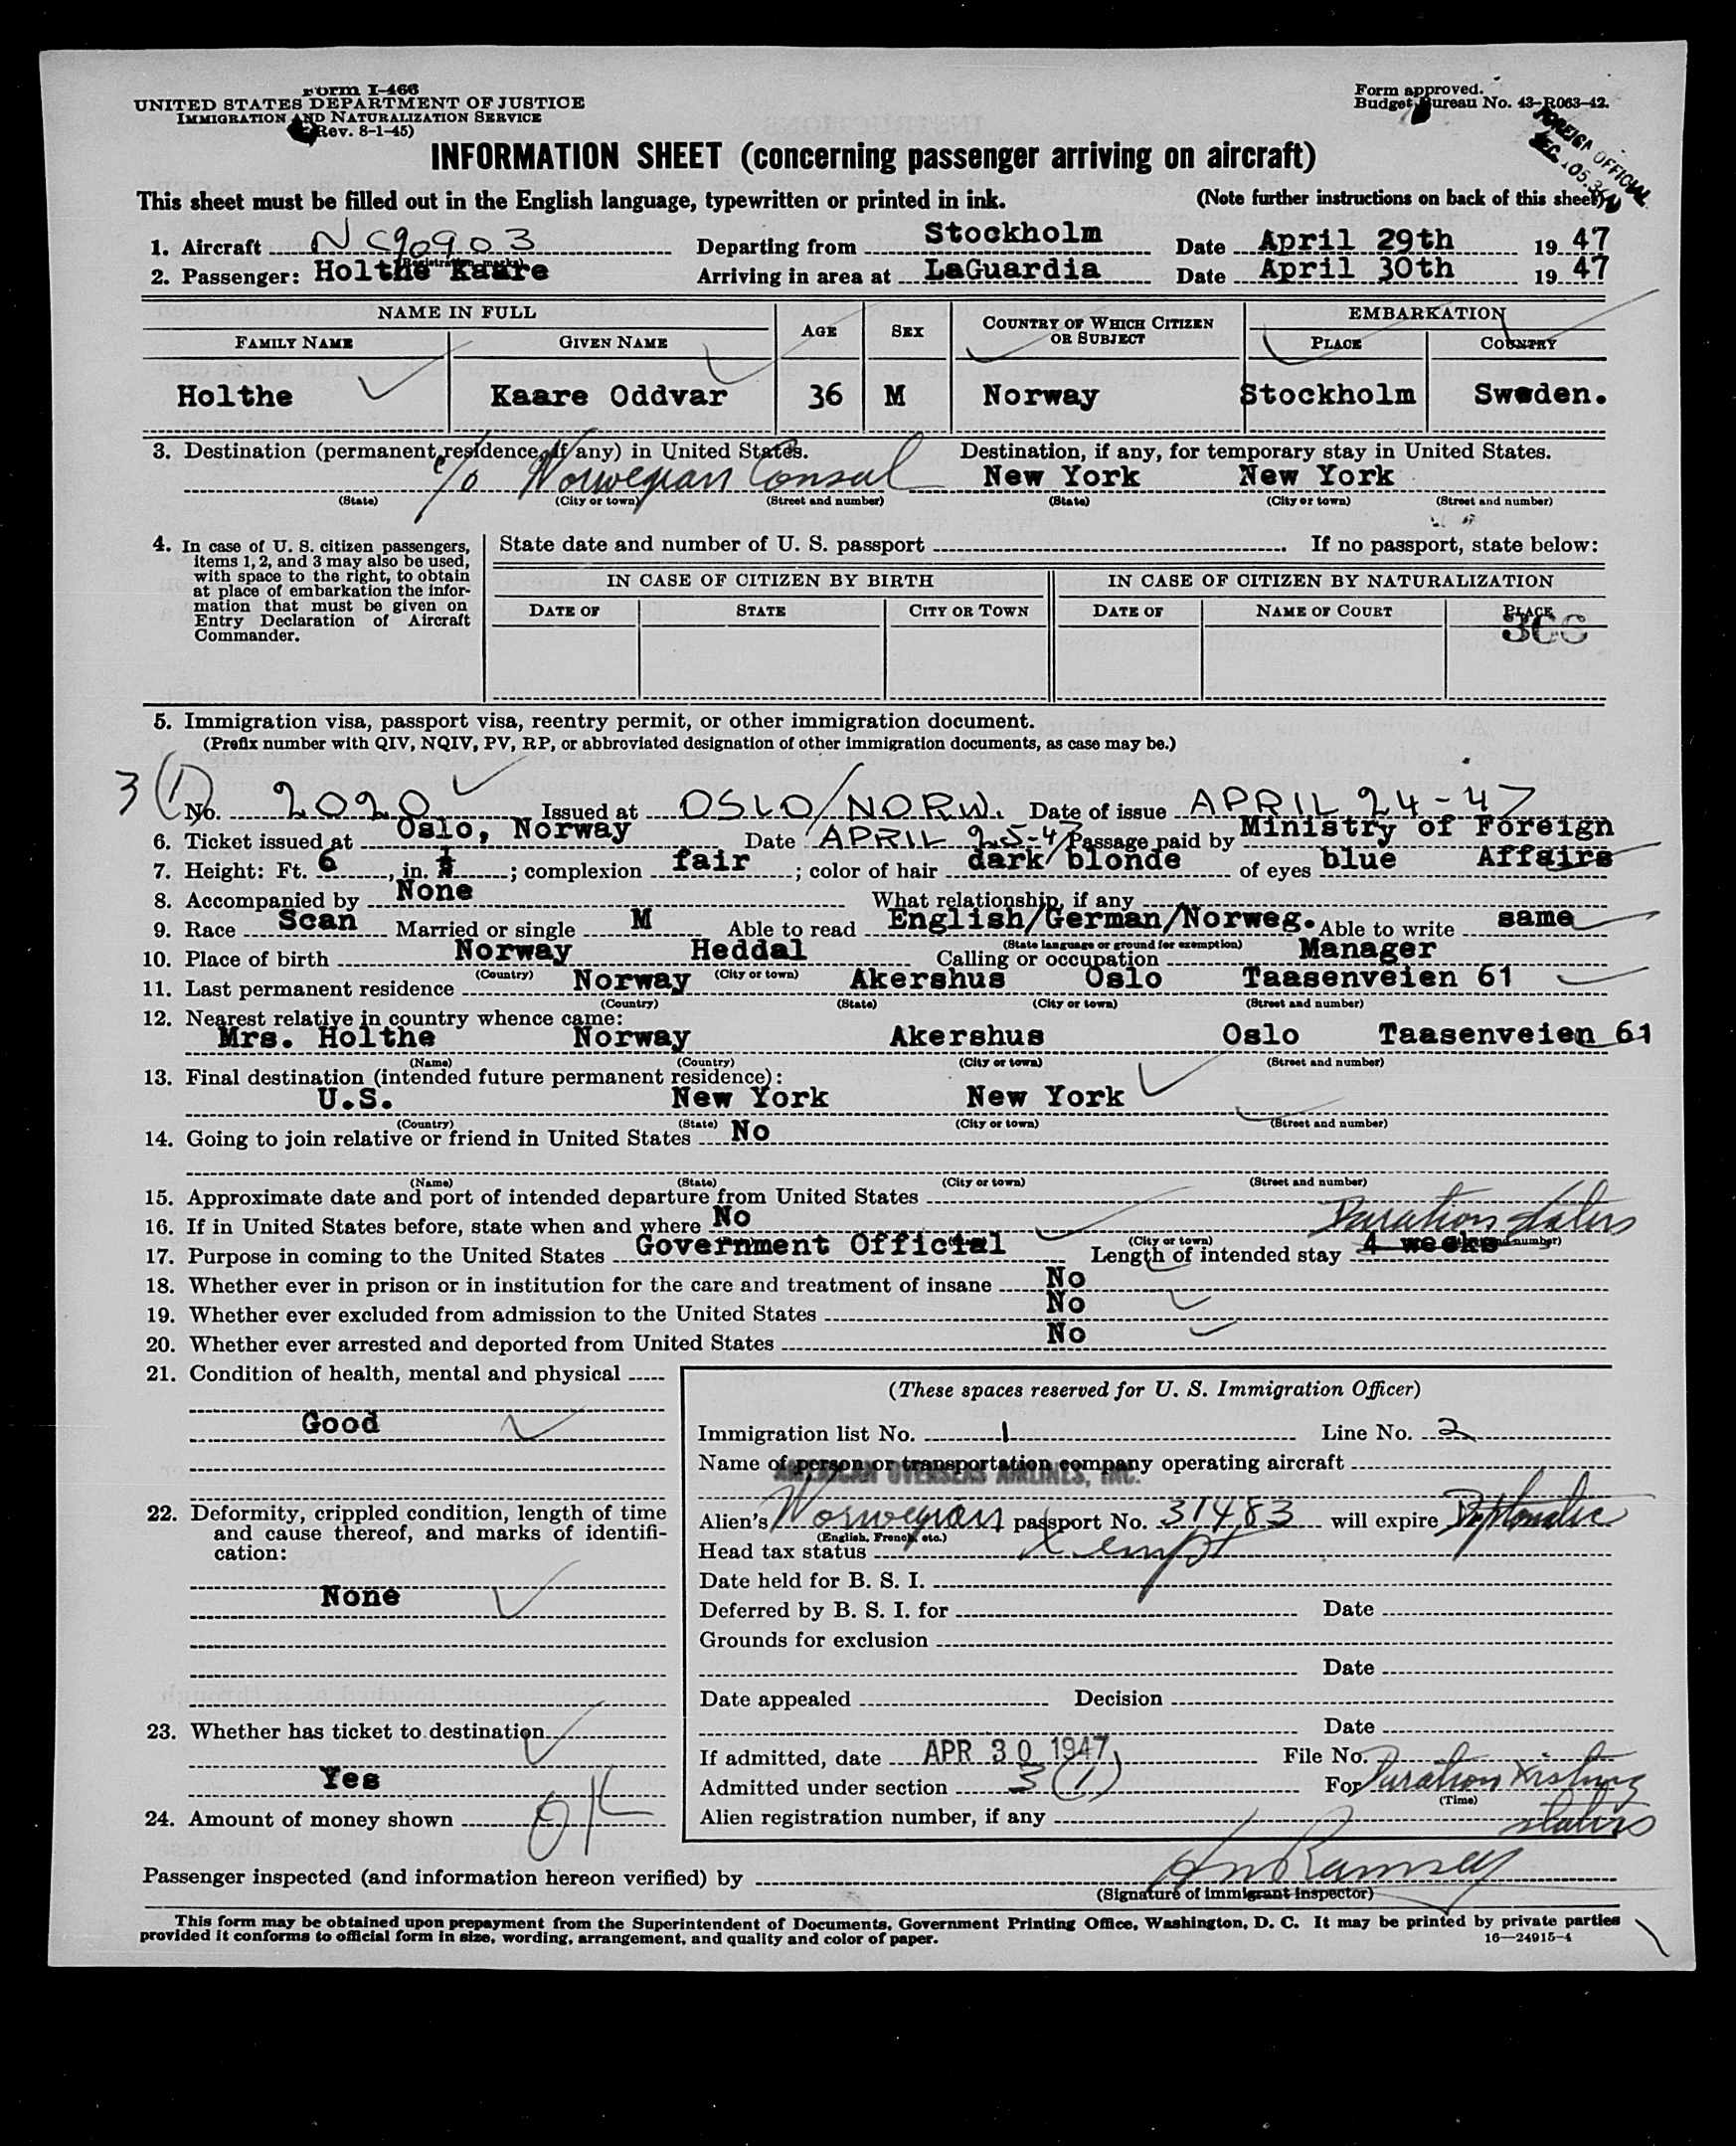 Form I-466
UNITED STATES DEPARTMENT OF JUSTICE
IMMIGRATION AND NATURALIZATION SERVICE
(Rev. 8-1-45)
Form approved.
Budget Bureau No. 43-R063-42.
FOREIGN OFFICIAL
INFORMATION SHEET (concerning passenger arriving on aircraft)
This sheet must be filled out in the English language, typewritten or printed in ink. (Note further instructions on back of this sheet)
1. Aircraft NC90903 Departing from Stockholm Date April 29th 1947
(Registration marks)
2. Passenger: Holthe Kaare Arriving in area at LaGuardia Date April 30th 1947
NAME IN FULL AGE SEX COUNTRY OF WHICH CITIZEN OR SUBJECT EMBARKATION
FAMILY NAME GIVEN NAME PLACE COUNTRY
Holthe Kaare Oddvar 36 M Norway Stockholm Sweden.
3. Destination (permanent residence, if any) in United States. Destination, if any, for temporary stay in United States.
c/o Norwegian Consul New York New York
(State) (City or town) (Street and number) (State) (City or town) (Street and number)
4. In case of U. S. citizen passengers, items 1, 2, and 3 may also be used, with space to the right, to obtain at place of embarkation the information that must be given on Entry Declaration of Aircraft Commander.
State date and number of U. S. passport . If no passport, state below:
IN CASE OF CITIZEN BY BIRTH IN CASE OF CITIZEN BY NATURALIZATION
DATE OF STATE CITY OR TOWN DATE OF NAME OF COURT PLACE
5. Immigration visa, passport visa, reentry permit, or other immigration document.
(Prefix number with QIV, NQIV, PV, RP, or abbreviated designation of other immigration documents, as case may be.)
3(1) No. 2020 Issued at OSLO/NORW. Date of issue APRIL 24-47
6. Ticket issued at Oslo, Norway Date APRIL 25-47 Passage paid by Ministry of Foreign Affairs
7. Height: Ft. 6, in. ; complexion fair; color of hair dark/blonde of eyes blue
8. Accompanied by None What relationship, if any
9. Race Scan Married or single M Able to read English/German/Norweg. Able to write same
(State language or ground for exemption)
10. Place of birth Norway Heddal Calling or occupation Manager
(Country) (City or town)
11. Last permanent residence Norway Akershus Oslo Taasenveien 61
(Country) (State) (City or town) (Street and number)
12. Nearest relative in country whence came:
Mrs. Holthe Norway Akershus Oslo Taasenveien 61
(Name) (Country) (City or town) (Street and number)
13. Final destination (intended future permanent residence):
U.S. New York New York
(Country) (State) (City or town) (Street and number)
14. Going to join relative or friend in United States No
(Name) (State) (City or town) (Street and number)
15. Approximate date and port of intended departure from United States
16. If in United States before, state when and where No Duration status
(City or town) (Street and number)
17. Purpose in coming to the United States Government Official Length of intended stay 4 weeks
18. Whether ever in prison or in institution for the care and treatment of insane No
19. Whether ever excluded from admission to the United States No
20. Whether ever arrested and deported from United States No
21. Condition of health, mental and physical
Good
22. Deformity, crippled condition, length of time and cause thereof, and marks of identification:
None
23. Whether has ticket to destination
Yes
24. Amount of money shown OK
(These spaces reserved for U. S. Immigration Officer)
Immigration list No. 1 Line No. 2
Name of person or transportation company operating aircraft
AMERICAN OVERSEAS AIRLINES, INC.
Alien's Norwegian passport No. 31483 will expire
(English, French, etc.)
Head tax status Exempt
Date held for B. S. I.
Deferred by B. S. I. for Date
Grounds for exclusion
Date
Date appealed Decision
Date
If admitted, date APR 30 1947 File No.
Admitted under section 3(1) For Duration existing status
(Time)
Alien registration number, if any
Passenger inspected (and information hereon verified) by Ramsey
(Signature of immigrant inspector)
This form may be obtained upon prepayment from the Superintendent of Documents, Government Printing Office, Washington, D. C. It may be printed by private parties
provided it conforms to official form in size, wording, arrangement, and quality and color of paper. 16—24915-4